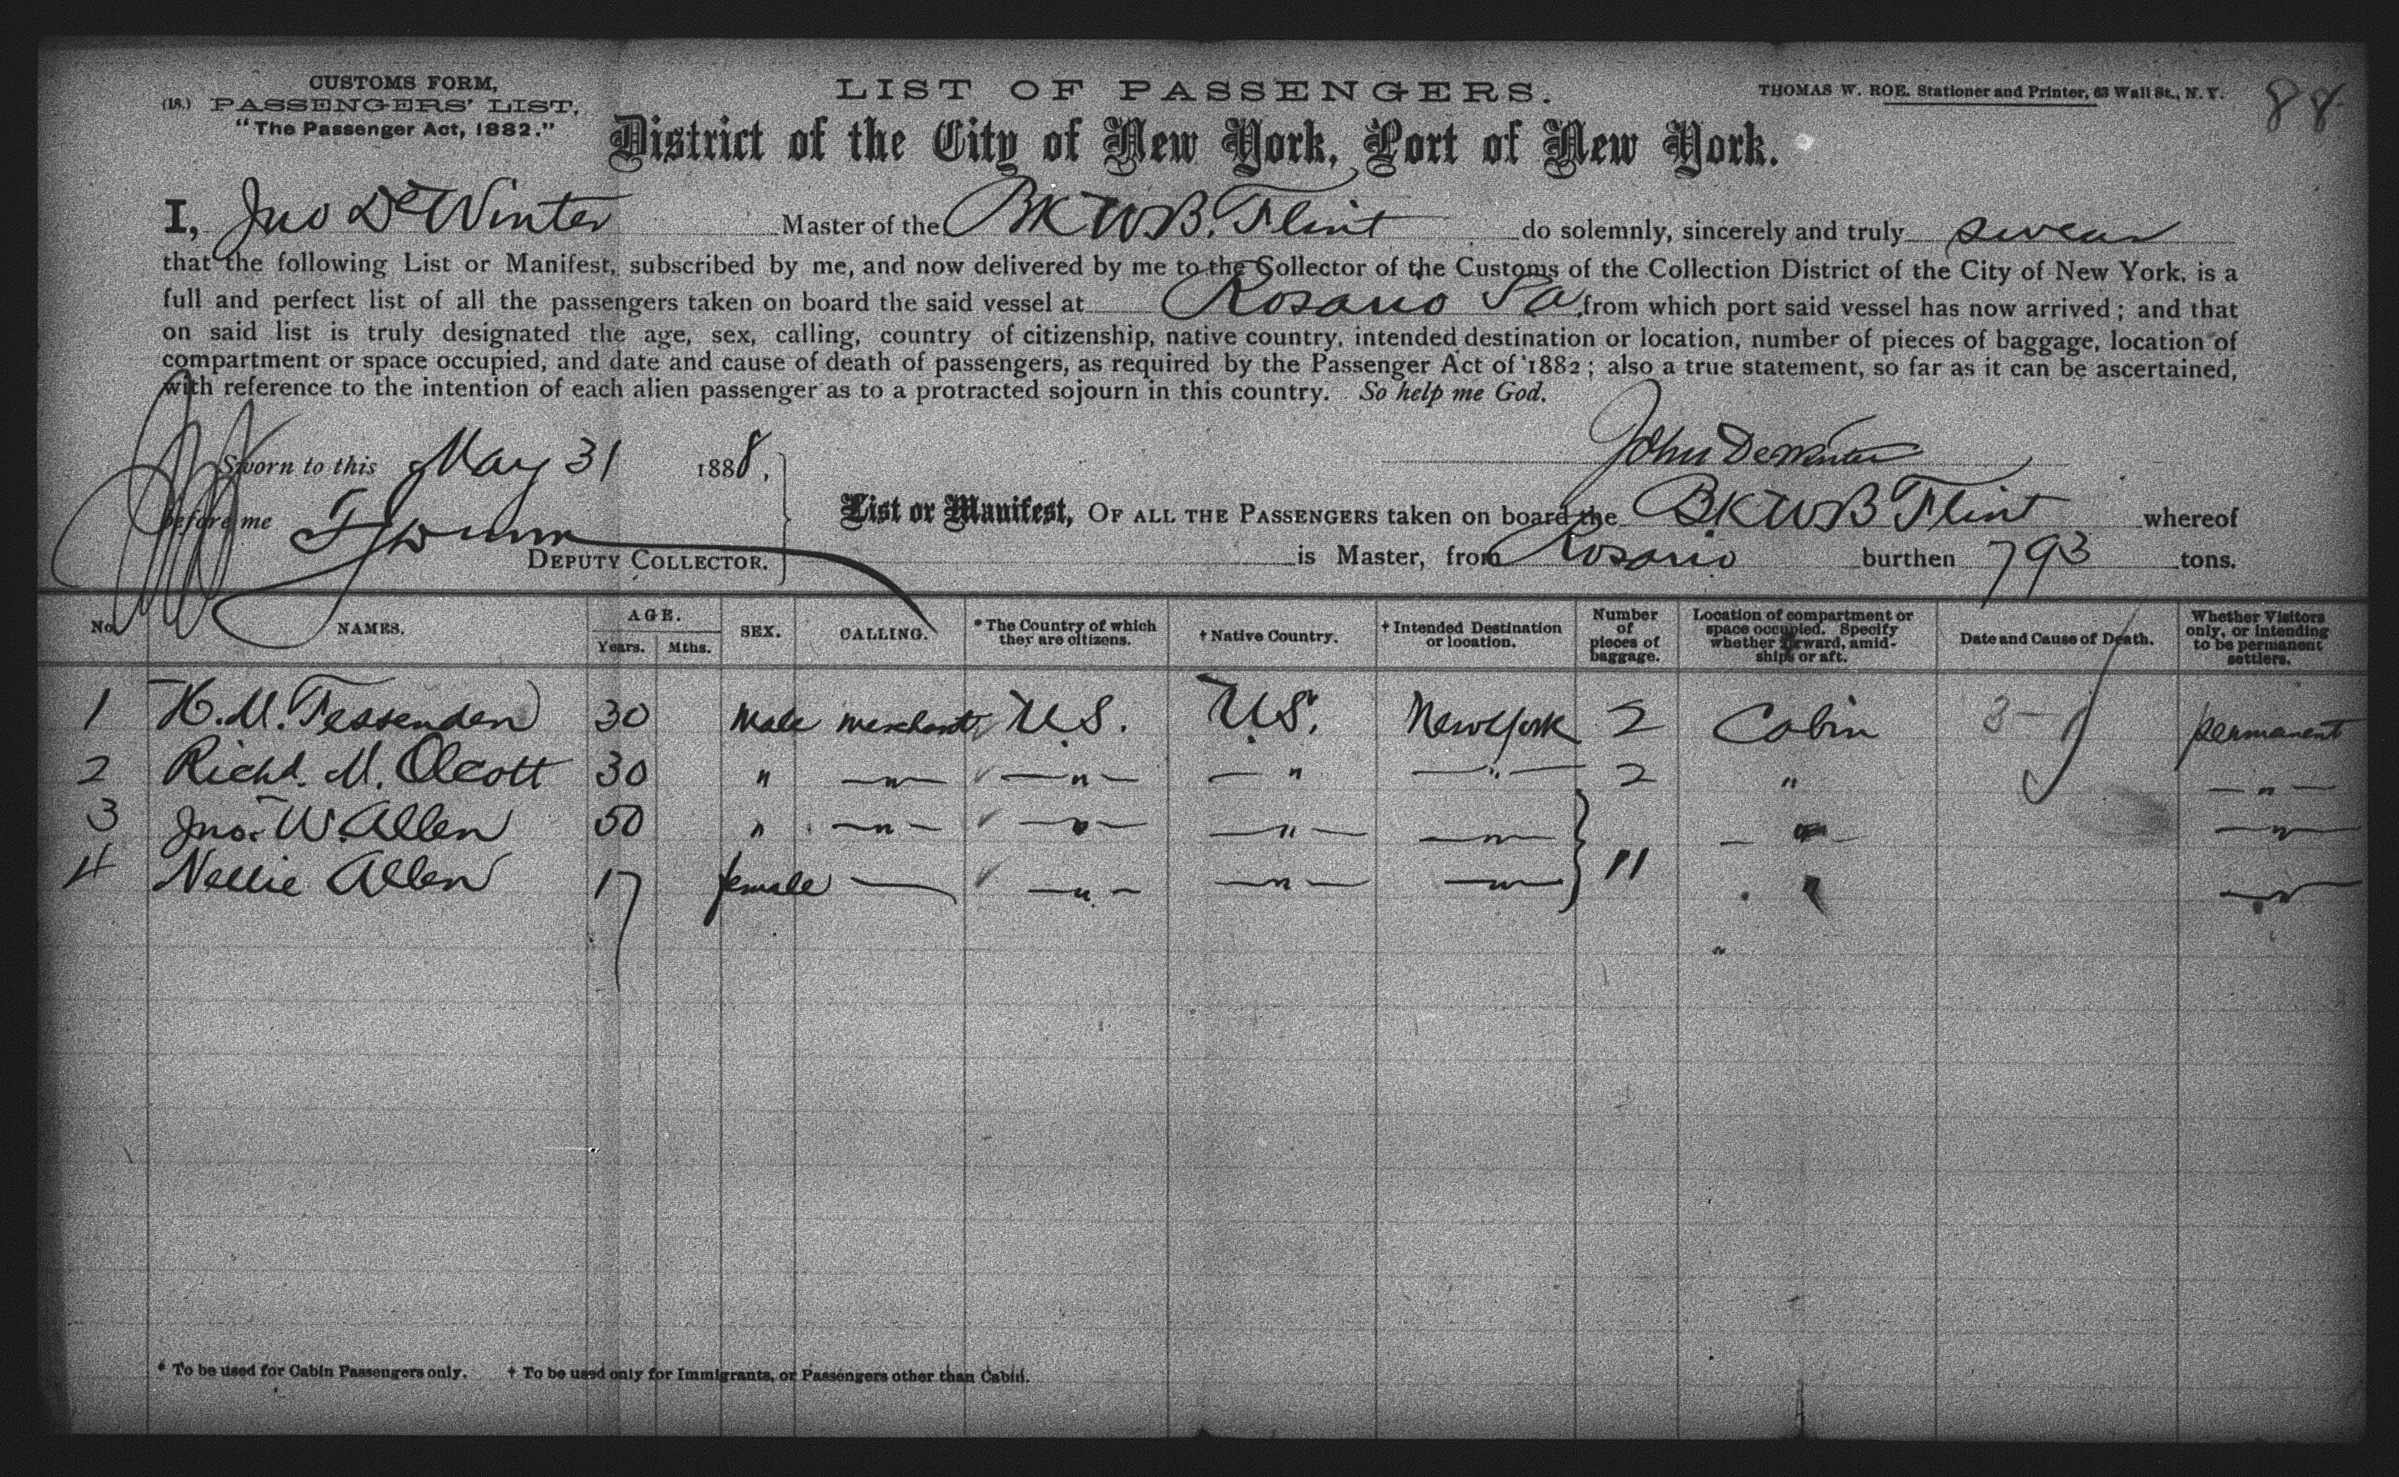 CUSTOMS FORM,
(18.) PASSENGERS' LIST,
"The Passenger Act, 1882."
LIST OF PASSENGERS.
THOMAS W. ROE. Stationer and Printer, 63 Wall St., N. Y.
88
District of the City of New York, Port of New York.
I, Jno De Winter Master of the BK W B. Flint do solemnly, sincerely and truly swear
that the following List or Manifest, subscribed by me, and now delivered by me to the Collector of the Customs of the Collection District of the City of New York, is a
full and perfect list of all the passengers taken on board the said vessel at Rosario from which port said vessel has now arrived; and that
on said list is truly designated the age, sex, calling, country of citizenship, native country, intended destination or location, number of pieces of baggage, location of
compartment or space occupied, and date and cause of death of passengers, as required by the Passenger Act of 1882; also a true statement, so far as it can be ascertained,
with reference to the intention of each alien passenger as to a protracted sojourn in this country. So help me God.
John DeWinter
Sworn to this May 31 1888,
before me
DEPUTY COLLECTOR.
List or Manifest, OF ALL THE PASSENGERS taken on board the BK W B Flint whereof
is Master, from Rosario burthen 793 tons.
No. NAMES. AGE. Years. Mths. SEX. CALLING. * The Country of which they are citizens. † Native Country. † Intended Destination or location. Number of pieces of baggage. Location of compartment or space occupied. Specify whether forward, amidships or aft. Date and Cause of Death. Whether Visitors only, or intending to be permanent settlers.
1 H. M. Fessenden 30 Male Merchant U.S. U.S. New York 2 Cabin 3- permanent
2 Richd. M. Olcott 30 " — " — — " — — " — " — 2 " — " —
3 Jno. W. Allen 50 " — " — — " — — " — — " — — " —
4 Nellie Allen 17 female — — " — — " — — " — 11 — " —
* To be used for Cabin Passengers only. † To be used only for Immigrants, or Passengers other than Cabin.